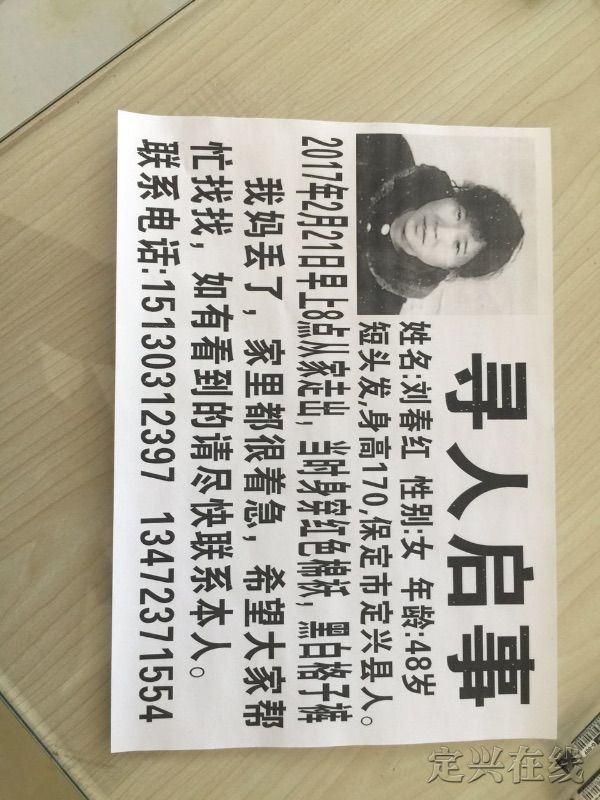 寻人启事
姓名:刘春红 性别:女 年龄:48岁
短头发,身高170,保定市定兴县人。
2017年2月21日早上8点从家走出，当时身穿红色棉袄，黑白格子裤
我妈丢了，家里都很着急，希望大家帮
忙找找，如有看到的请尽快联系本人。
联系电话:15130312397 13472371554
定兴在线